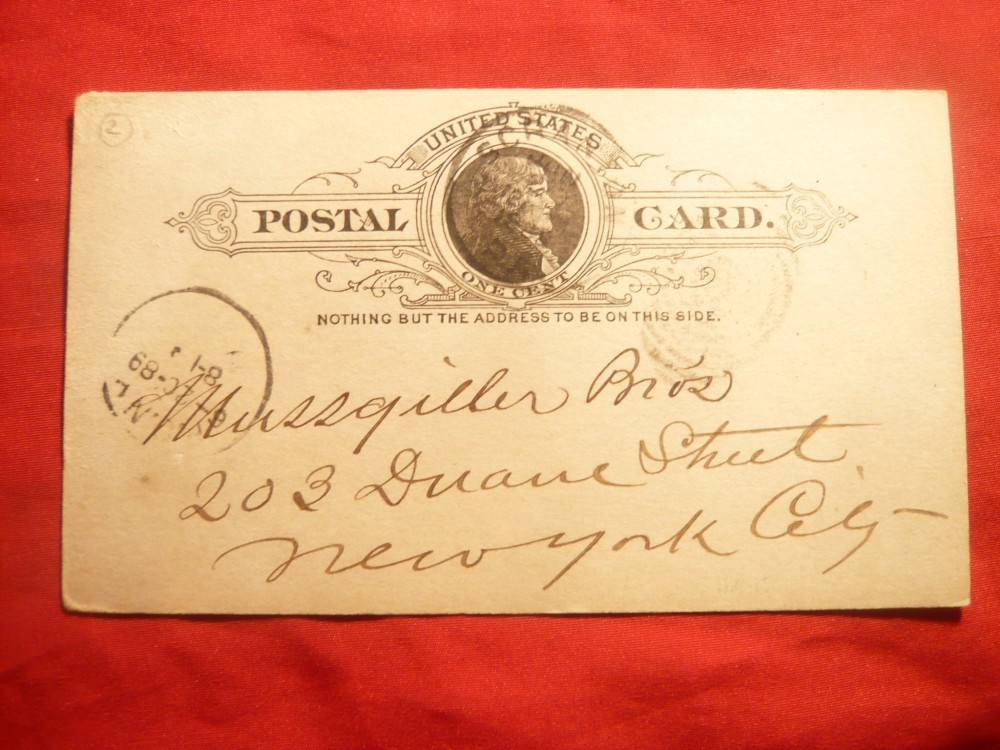 2
UNITED STATES
POSTAL CARD.
ONE CENT
NOTHING BUT THE ADDRESS TO BE ON THIS SIDE.
Mussgiller Bros
203 Duane Street
New York City